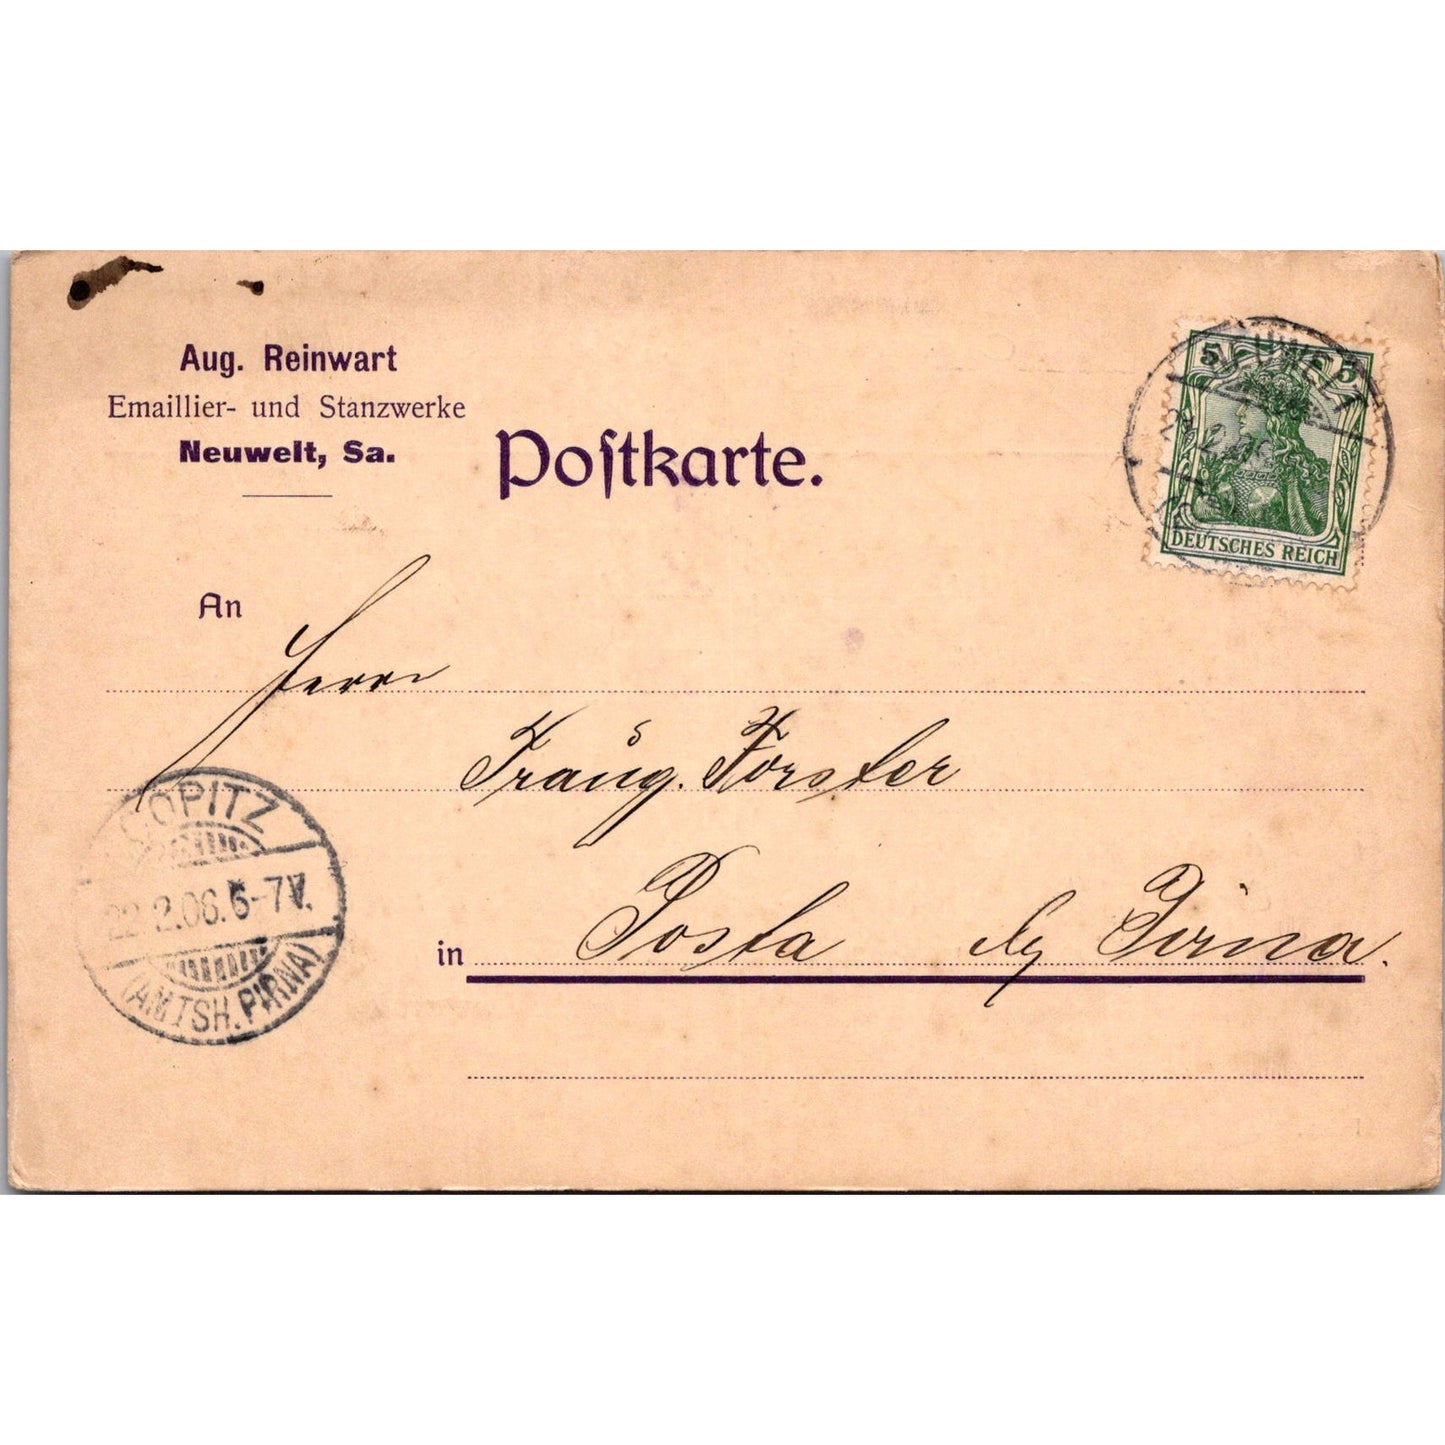 Aug. Reinwart
Emaillier- und Stanzwerke
Neuwelt, Sa.
Poſtkarte.
5 5
DEUTSCHES REICH
An
Herrn
Traug. Förster
in Posta b/ Pirna.
COPITZ
22.2.06. 6-7 V.
(AMTSH. PIRNA)